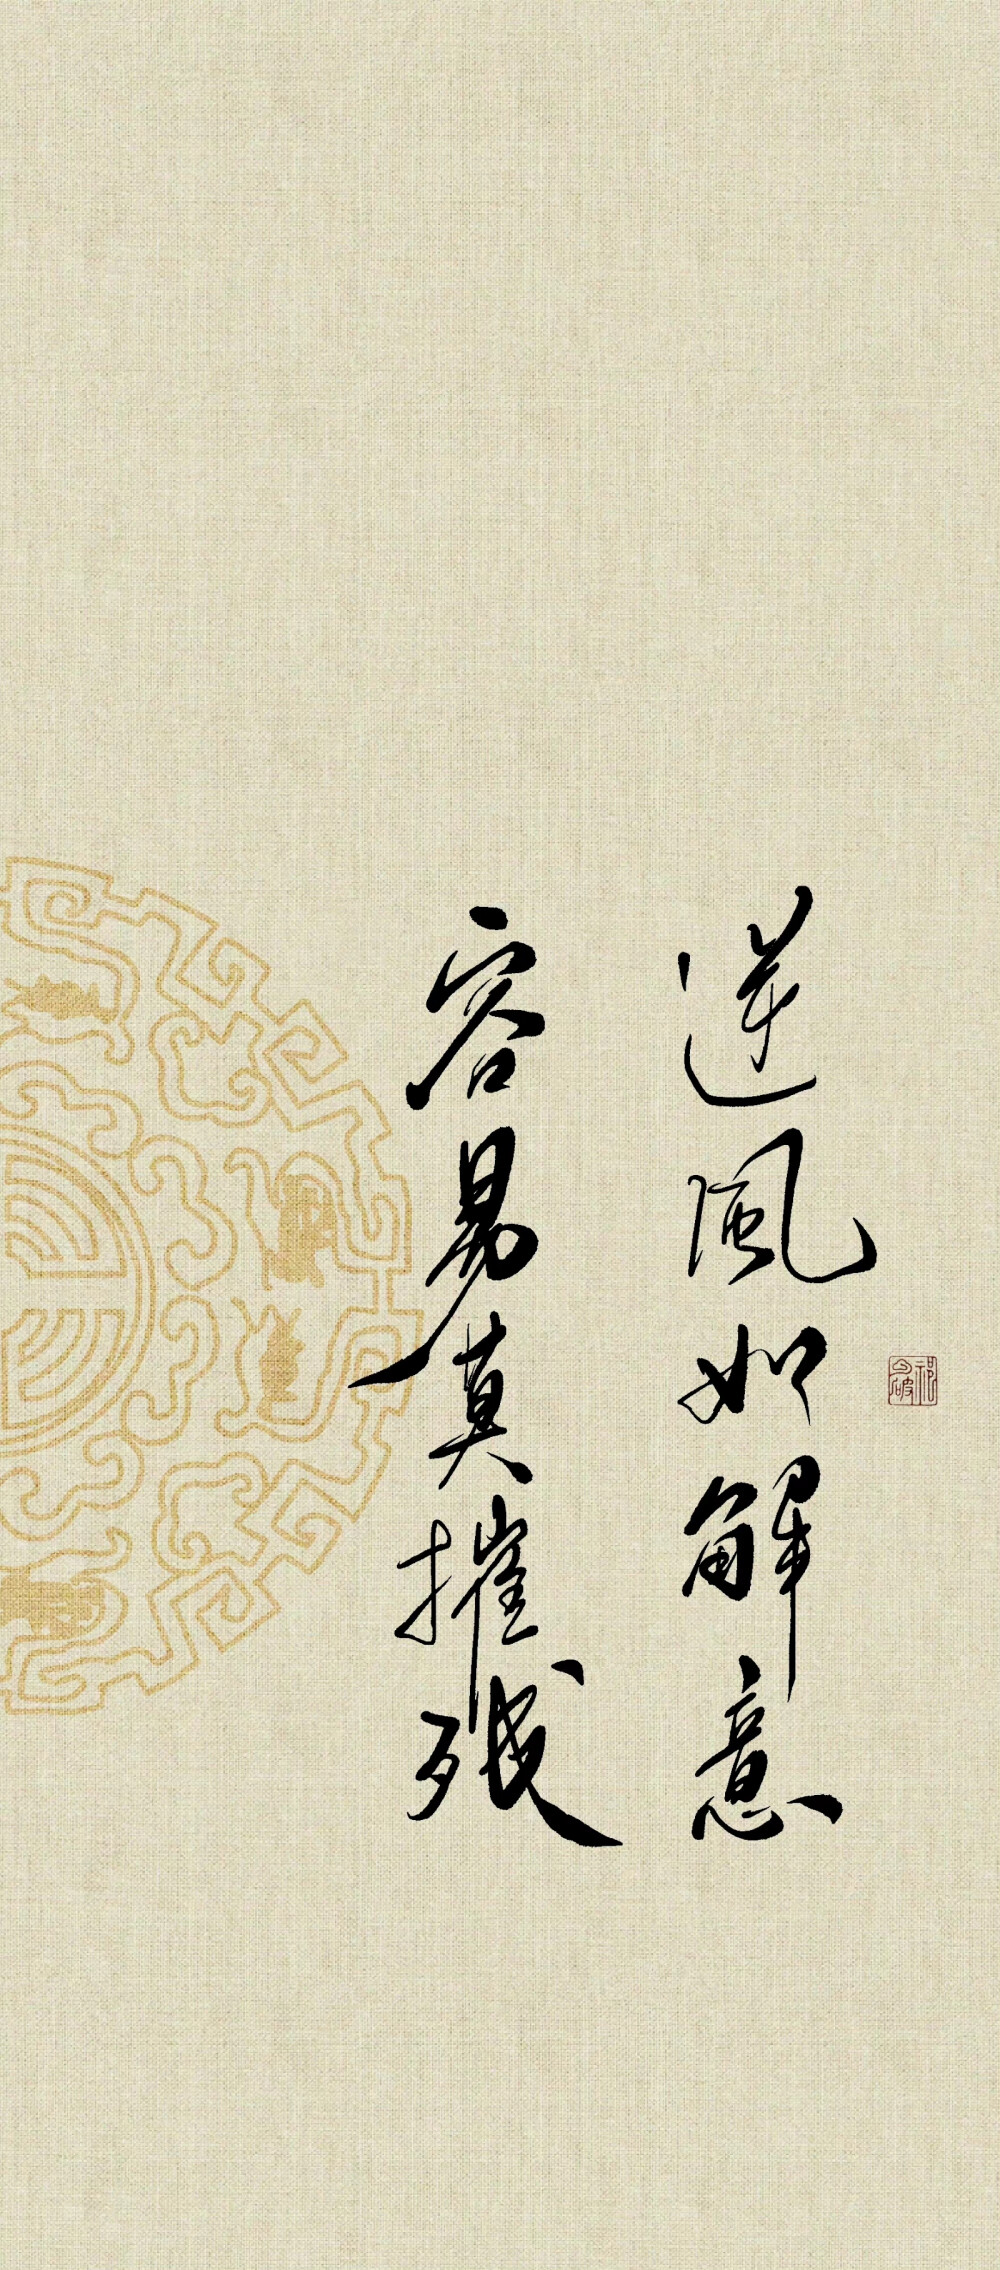 逆風如解意
容易莫摧残